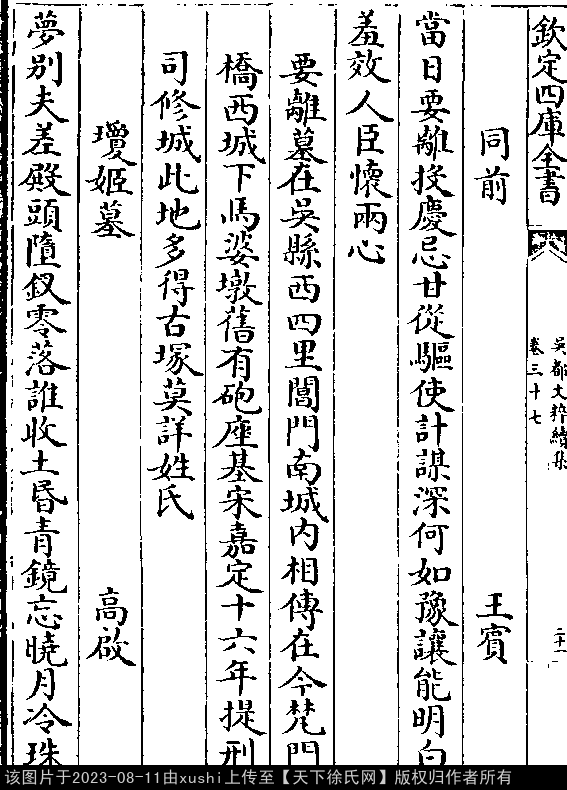 欽定四庫全書
吳都文粹續集
卷三十七
二十一
同前
王賓
當日要離投慶忌甘從驅使計謀深何如豫讓能明白
羞效人臣懷兩心
要離墓在吳縣西四里閶門南城内相傳在今梵門
橋西城下馬婆墩舊有砲座基宋嘉定十六年提刑
司修城此地多得古塚莫詳姓氏
瓊姬墓
高啟
夢别夫差殿頭隨釵零落誰收土昬青鏡忘曉月冷珠
该图片于2023-08-11由xushi上传至【天下徐氏网】版权归作者所有